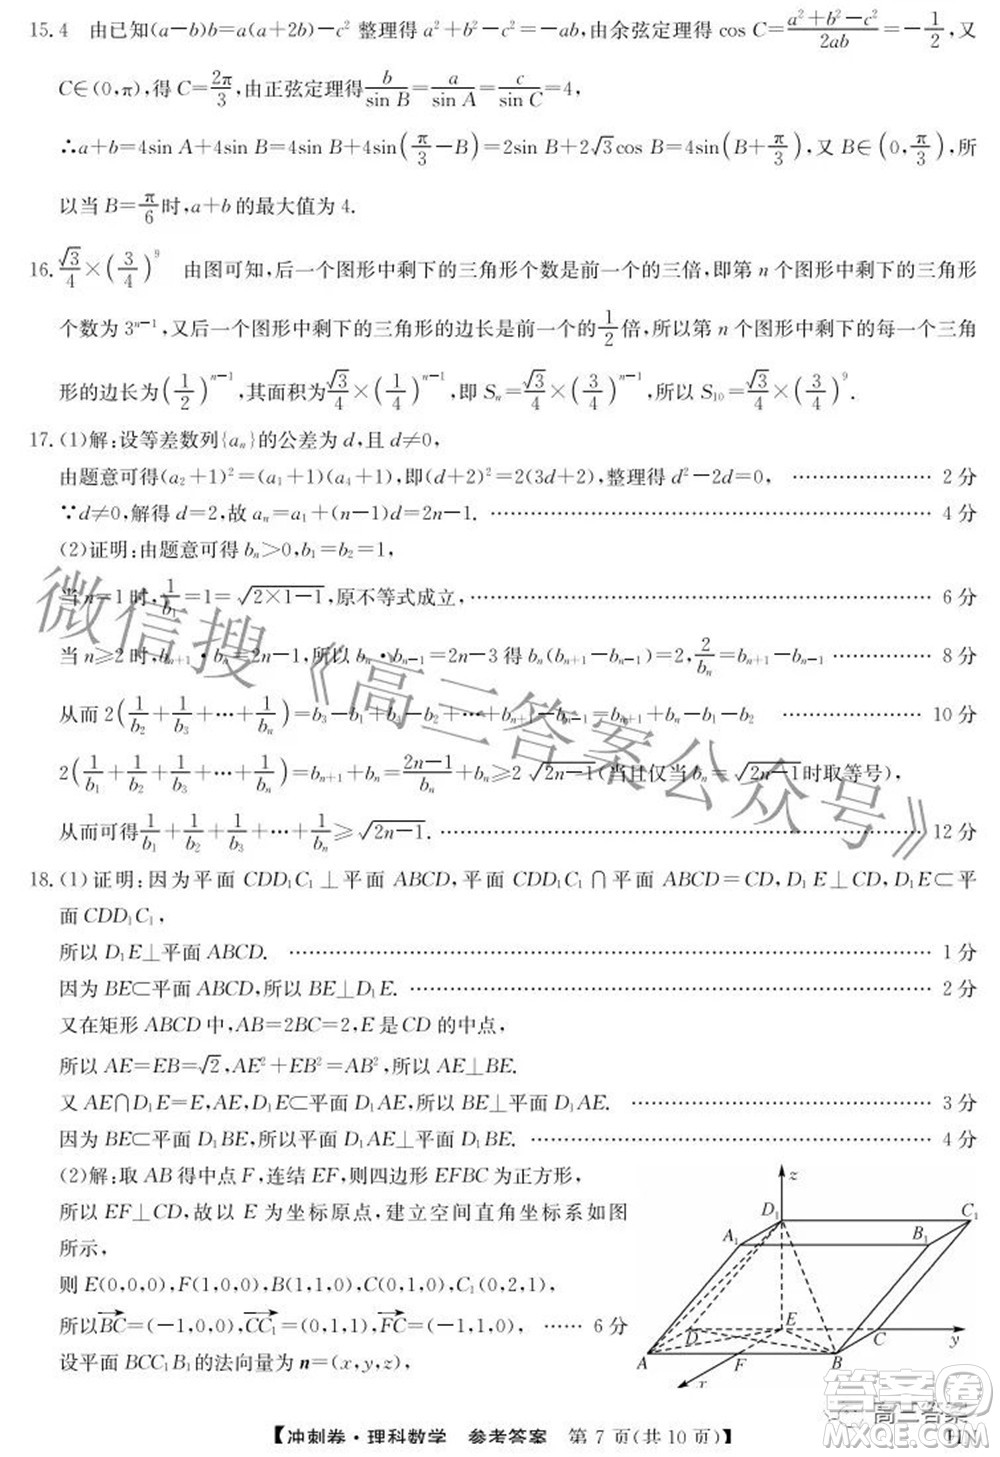 15. 4　由已知(a−b)b=a(a+2b)−c² 整理得 a²+b²−c²=−ab,由余弦定理得 cos C=(a²+b²−c²)/(2ab)=−1/2,又
C∈(0,π),得 C=2π/3,由正弦定理得 b/sin B=a/sin A=c/sin C=4,
∴a+b=4sin A+4sin B=4sin B+4sin(π/3−B)=2sin B+2√3cos B=4sin(B+π/3),又 B∈(0,π/3),所
以当 B=π/6时,a+b 的最大值为 4.
16. √3/4×(3/4)⁹　由图可知,后一个图形中剩下的三角形个数是前一个的三倍,即第 n 个图形中剩下的三角形
个数为 3ⁿ⁻¹,又后一个图形中剩下的三角形的边长是前一个的1/2倍,所以第 n 个图形中剩下的每一个三角
形的边长为(1/2)ⁿ⁻¹,其面积为√3/4×(1/4)ⁿ⁻¹,即 Sₙ=√3/4×(3/4)ⁿ⁻¹,所以 S₁₀=√3/4×(3/4)⁹.
17. (1)解:设等差数列{aₙ}的公差为 d,且 d≠0,
由题意可得(a₂+1)²=(a₁+1)(a₄+1),即(d+2)²=2(3d+2),整理得 d²−2d=0, ………………… 2 分
∵d≠0,解得 d=2,故 aₙ=a₁+(n−1)d=2n−1. ………………… 4 分
(2)证明:由题意可得 bₙ>0,b₁=b₂=1,
当 n=1 时,1/b₁=1=√(2×1−1),原不等式成立, ………………… 6 分
当 n≥2 时,bₙ₊₁·bₙ=2n−1,所以 bₙ·bₙ₋₁=2n−3 得 bₙ(bₙ₊₁−bₙ₋₁)=2,2/bₙ=bₙ₊₁−bₙ₋₁ ……… 8 分
从而 2(1/b₂+1/b₃+…+1/bₙ)=b₃−b₁+b₄−b₂+…+bₙ₊₁−bₙ₋₁=bₙ₊₁+bₙ−b₁−b₂ ………………… 10 分
2(1/b₁+1/b₂+1/b₃+…+1/bₙ)=bₙ₊₁+bₙ=(2n−1)/bₙ+bₙ≥2√(2n−1)(当且仅当 bₙ=√(2n−1)时取等号),
从而可得1/b₁+1/b₂+1/b₃+…+1/bₙ≥√(2n−1). ………………… 12 分
18. (1)证明:因为平面 CDD₁C₁⊥平面 ABCD,平面 CDD₁C₁∩平面 ABCD=CD,D₁E⊥CD,D₁E⊂平
面 CDD₁C₁,
所以 D₁E⊥平面 ABCD. ………………… 1 分
因为 BE⊂平面 ABCD,所以 BE⊥D₁E. ………………… 2 分
又在矩形 ABCD 中,AB=2BC=2,E 是 CD 的中点,
所以 AE=EB=√2,AE²+EB²=AB²,所以 AE⊥BE.
又 AE∩D₁E=E,AE,D₁E⊂平面 D₁AE,所以 BE⊥平面 D₁AE. ………………… 3 分
因为 BE⊂平面 D₁BE,所以平面 D₁AE⊥平面 D₁BE. ………………… 4 分
(2)解:取 AB 得中点 F,连结 EF,则四边形 EFBC 为正方形,
所以 EF⊥CD,故以 E 为坐标原点,建立空间直角坐标系如图
所示,
则 E(0,0,0),F(1,0,0),B(1,1,0),C(0,1,0),C₁(0,2,1),
所以BC→=(−1,0,0),CC₁→=(0,1,1),FC→=(−1,1,0), …… 6 分
设平面 BCC₁B₁的法向量为 n=(x,y,z),
z
D₁
C₁
A₁
B₁
D
E
C
y
A
F
B
x
微信搜《高三答案公众号》
答案圈
高三答案
【冲刺卷·理科数学　参考答案　第 7 页(共 10 页)】
HN